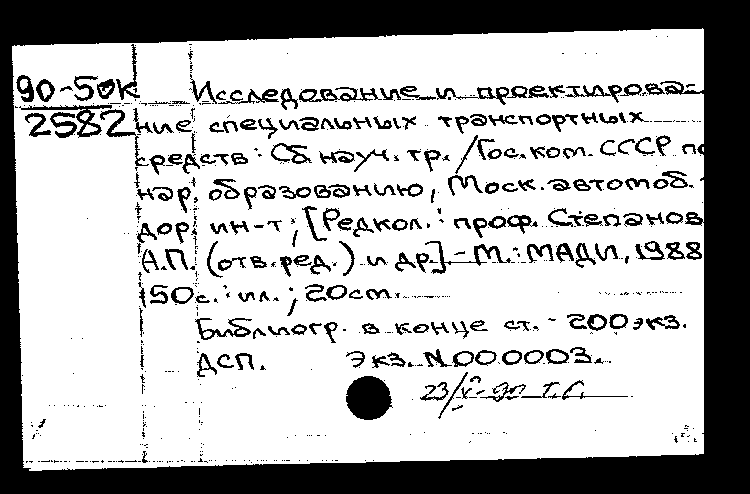 90-50к Исследование и проектирова-
2582 ние специальных транспортных
средств: Сб. науч. тр. / Гос. ком. СССР по
нар. образованию, Моск. автомоб.-
дор. ин-т; [Редкол.: проф. Степанов
А.П. (отв. ред.) и др.]. - М.: МАДИ, 1988
150 с.: ил.; 20 см.
Библиогр. в конце ст. - 200 экз.
ДСП. Экз. N 000003.
23/V-90 Т.С.